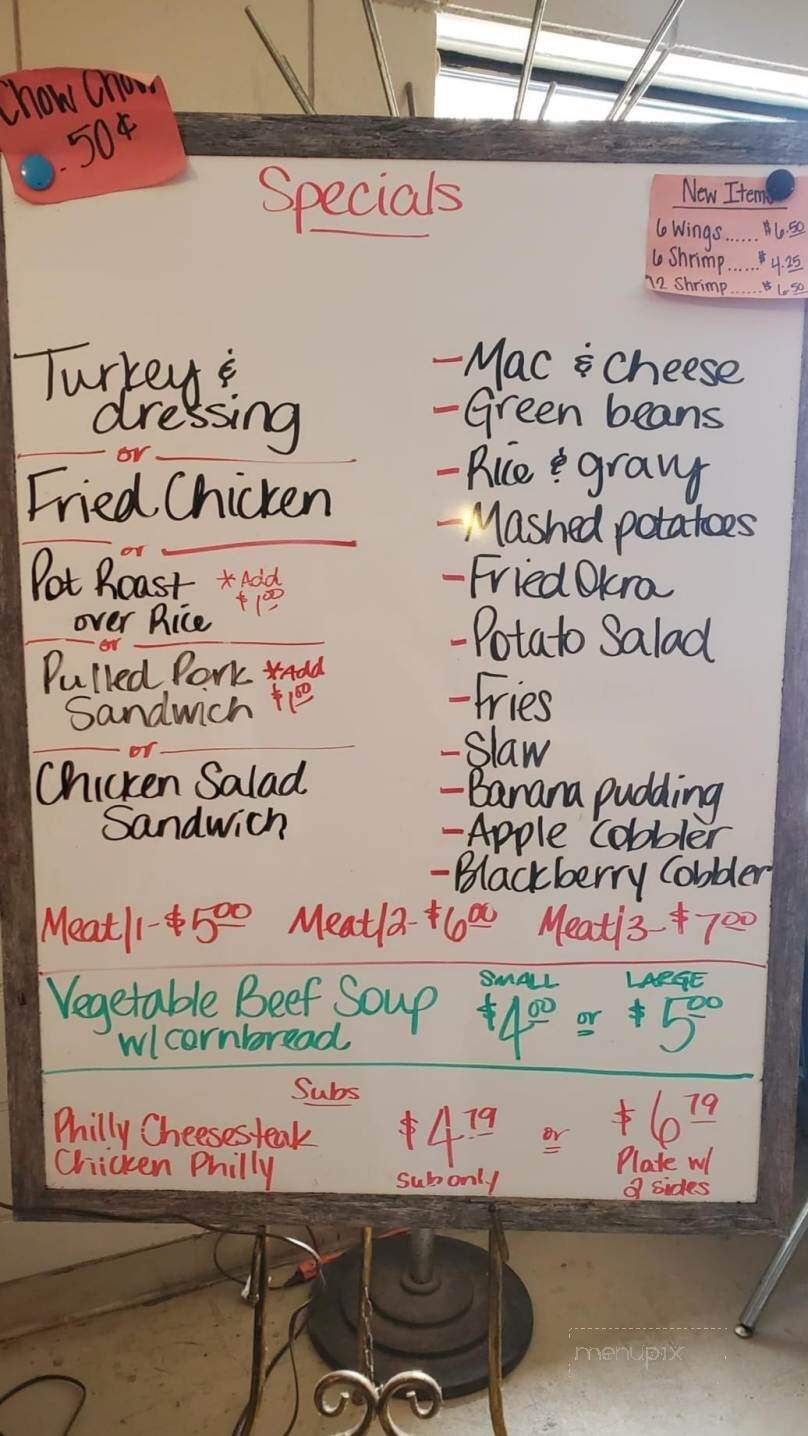 Chow Chow
.50¢
Specials
New Items
6 Wings...... $6.50
6 Shrimp...... $4.25
12 Shrimp...... $6.50
Turkey &
dressing
or
Fried Chicken
or
Pot Roast *Add
over Rice $1.00
or
Pulled Pork *Add
Sandwich $1.00
or
Chicken Salad
Sandwich
- Mac & Cheese
- Green beans
- Rice & gravy
- Mashed potatoes
- Fried Okra
- Potato Salad
- Fries
- Slaw
- Banana pudding
- Apple Cobbler
- Blackberry Cobbler
Meat/1-$5.00 Meat/2-$6.00 Meat/3-$7.00
Vegetable Beef Soup
w/ cornbread
SMALL LARGE
$4.00 or $5.00
Subs
Philly Cheesesteak
Chicken Philly
$4.79 or $6.79
Sub only
Plate w/
2 sides
menupix